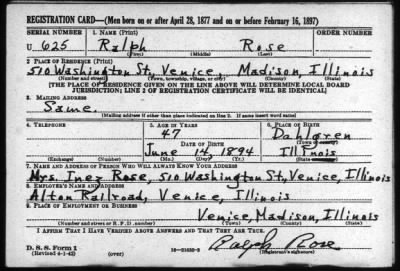 REGISTRATION CARD—(Men born on or after April 28, 1877 and on or before February 16, 1897)
SERIAL NUMBER 1. NAME (Print) ORDER NUMBER
U 625 Ralph Rose
(First) (Middle) (Last)
2. PLACE OF RESIDENCE (Print)
510 Washington St, Venice, Madison, Illinois
(Number and street) (Town, township, village, or city) (County) (State)
[THE PLACE OF RESIDENCE GIVEN ON THE LINE ABOVE WILL DETERMINE LOCAL BOARD
JURISDICTION; LINE 2 OF REGISTRATION CERTIFICATE WILL BE IDENTICAL]
3. MAILING ADDRESS
Same.
[Mailing address if other than place indicated on line 2. If same insert word same]
4. TELEPHONE 5. AGE IN YEARS 6. PLACE OF BIRTH
47 Dahlgren
DATE OF BIRTH (Town or county)
June 14, 1894 Illinois
(Exchange) (Number) (Mo.) (Day) (Yr.) (State or country)
7. NAME AND ADDRESS OF PERSON WHO WILL ALWAYS KNOW YOUR ADDRESS
Mrs. Inez Rose, 510 Washington St, Venice, Illinois
8. EMPLOYER'S NAME AND ADDRESS
Alton Railroad, Venice, Illinois
9. PLACE OF EMPLOYMENT OR BUSINESS
Venice, Madison, Illinois
(Number and street or R. F. D. number) (Town) (County) (State)
I AFFIRM THAT I HAVE VERIFIED ABOVE ANSWERS AND THAT THEY ARE TRUE.
D. S. S. Form 1
(Revised 4-1-42) (over) Ralph Rose
(Registrant's signature)